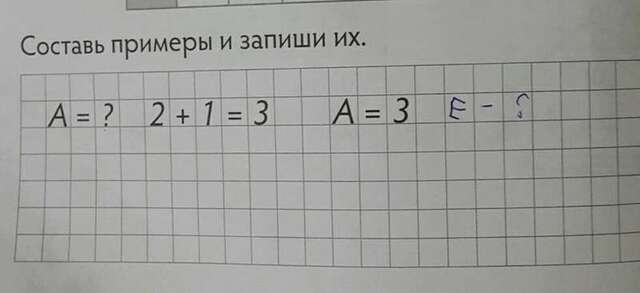 Составь примеры и запиши их.
А = ? 2 + 1 = 3 А = 3 Е - ?